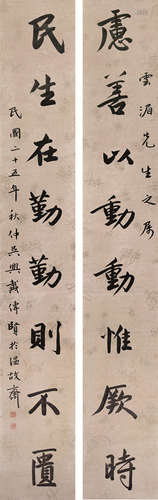 雲湄先生之屬
慮善以動動惟厥時
民生在勤勤則不匱
民國二十五年秋仲吳興戴傳賢於溫故齋